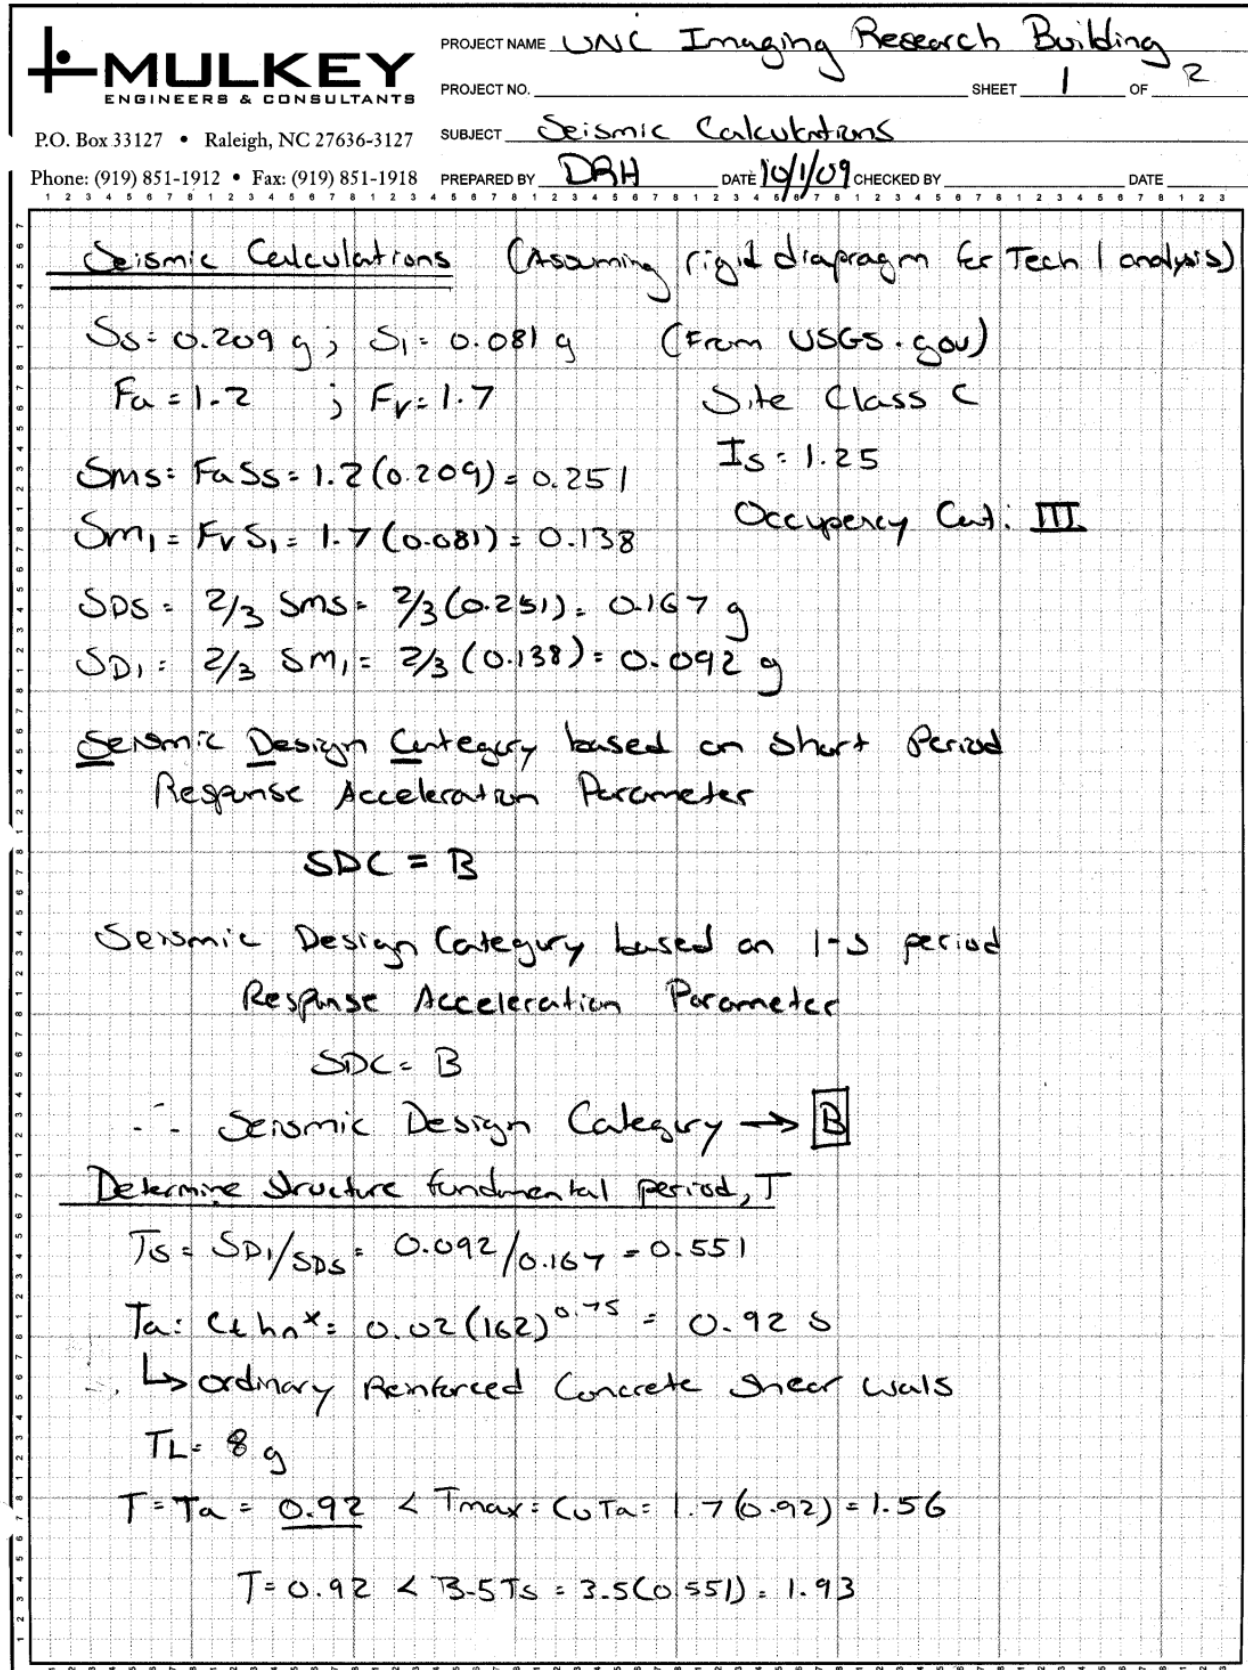 MULKEY
ENGINEERS & CONSULTANTS
P.O. Box 33127 • Raleigh, NC 27636-3127
Phone: (919) 851-1912 • Fax: (919) 851-1918
PROJECT NAME UNC Imaging Research Building
PROJECT NO. SHEET 1 OF 2
SUBJECT Seismic Calculations
PREPARED BY DRH DATE 10/1/09 CHECKED BY DATE
Seismic Calculations (Assuming rigid diapragm for Tech 1 analysis)
Ss = 0.209 g ; S1 = 0.081 g (From USGS.gov)
Fa = 1.2 ; Fv = 1.7 Site Class C
Is = 1.25
Sms = FaSs = 1.2(0.209) = 0.251
Occupency Cat: III
Sm1 = FvS1 = 1.7(0.081) = 0.138
SDS = 2/3 Sms = 2/3(0.251) = 0.167 g
SD1 = 2/3 Sm1 = 2/3(0.138) = 0.092 g
Seismic Design Category based on Short Period
Response Acceleration Parameter
SDC = B
Seismic Design Category based on 1-s period
Response Acceleration Parameter
SDC = B
∴ Seismic Design Category → B
Determine Structure fundamental period, T
Ts = SD1/SDS = 0.092/0.167 = 0.551
Ta = Ct hn^x = 0.02(162)^0.75 = 0.92 s
↳ ordinary Reinforced Concrete Shear Wals
TL = 8 g
T = Ta = 0.92 < Tmax = CuTa = 1.7(0.92) = 1.56
T = 0.92 < 3.5Ts = 3.5(0.551) = 1.93